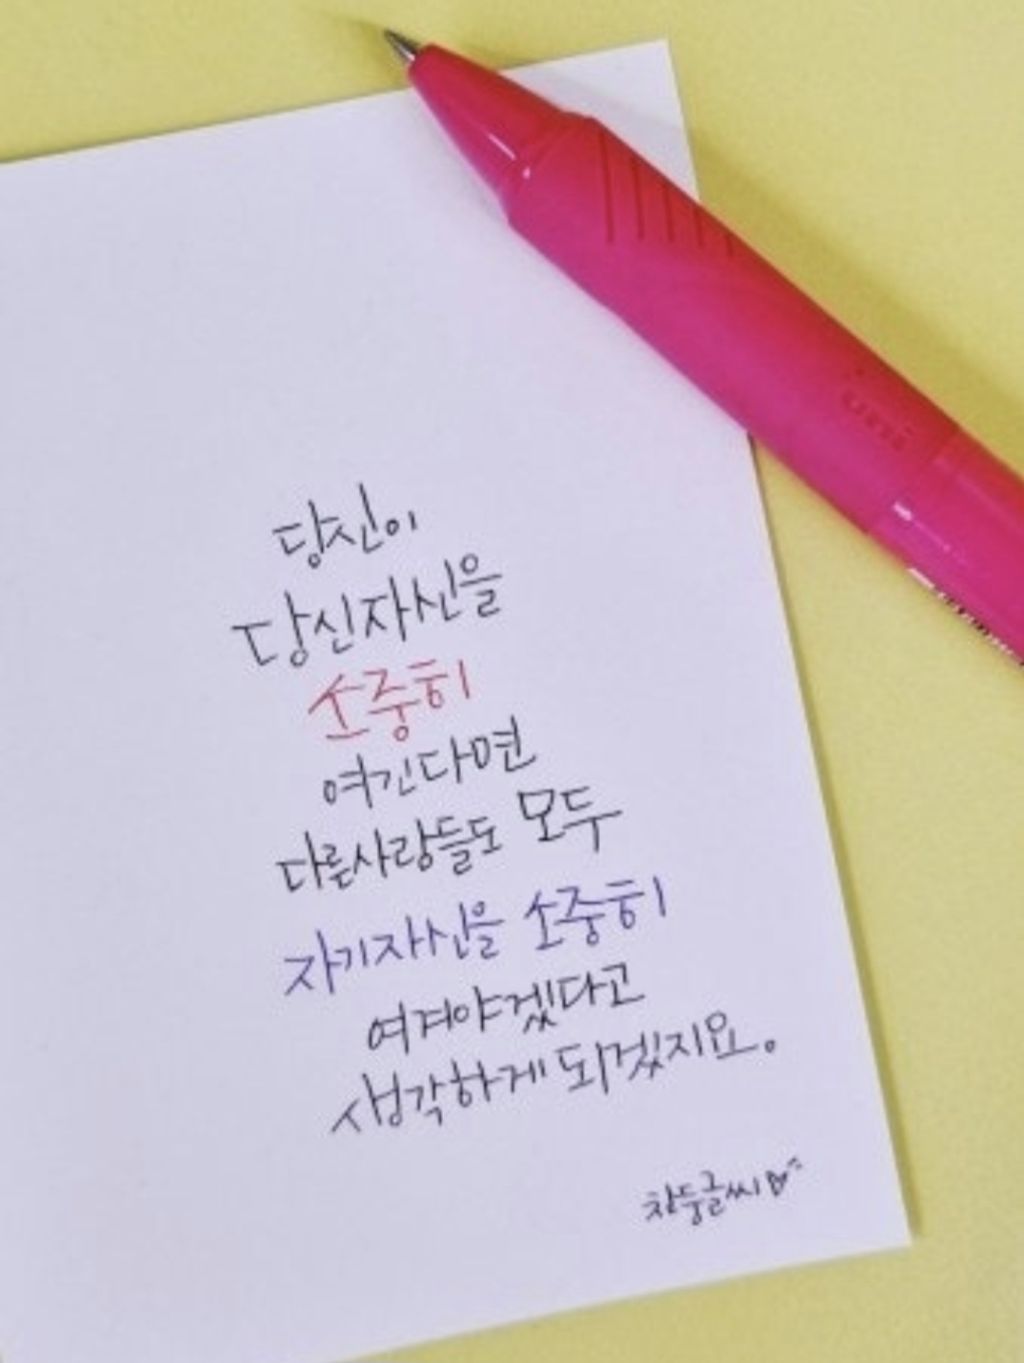 uni
당신이
당신자신을
소중히
여긴다면
다른사람들도 모두
자기자신을 소중히
여겨야겠다고
생각하게 되겠지요.
참둥글씨